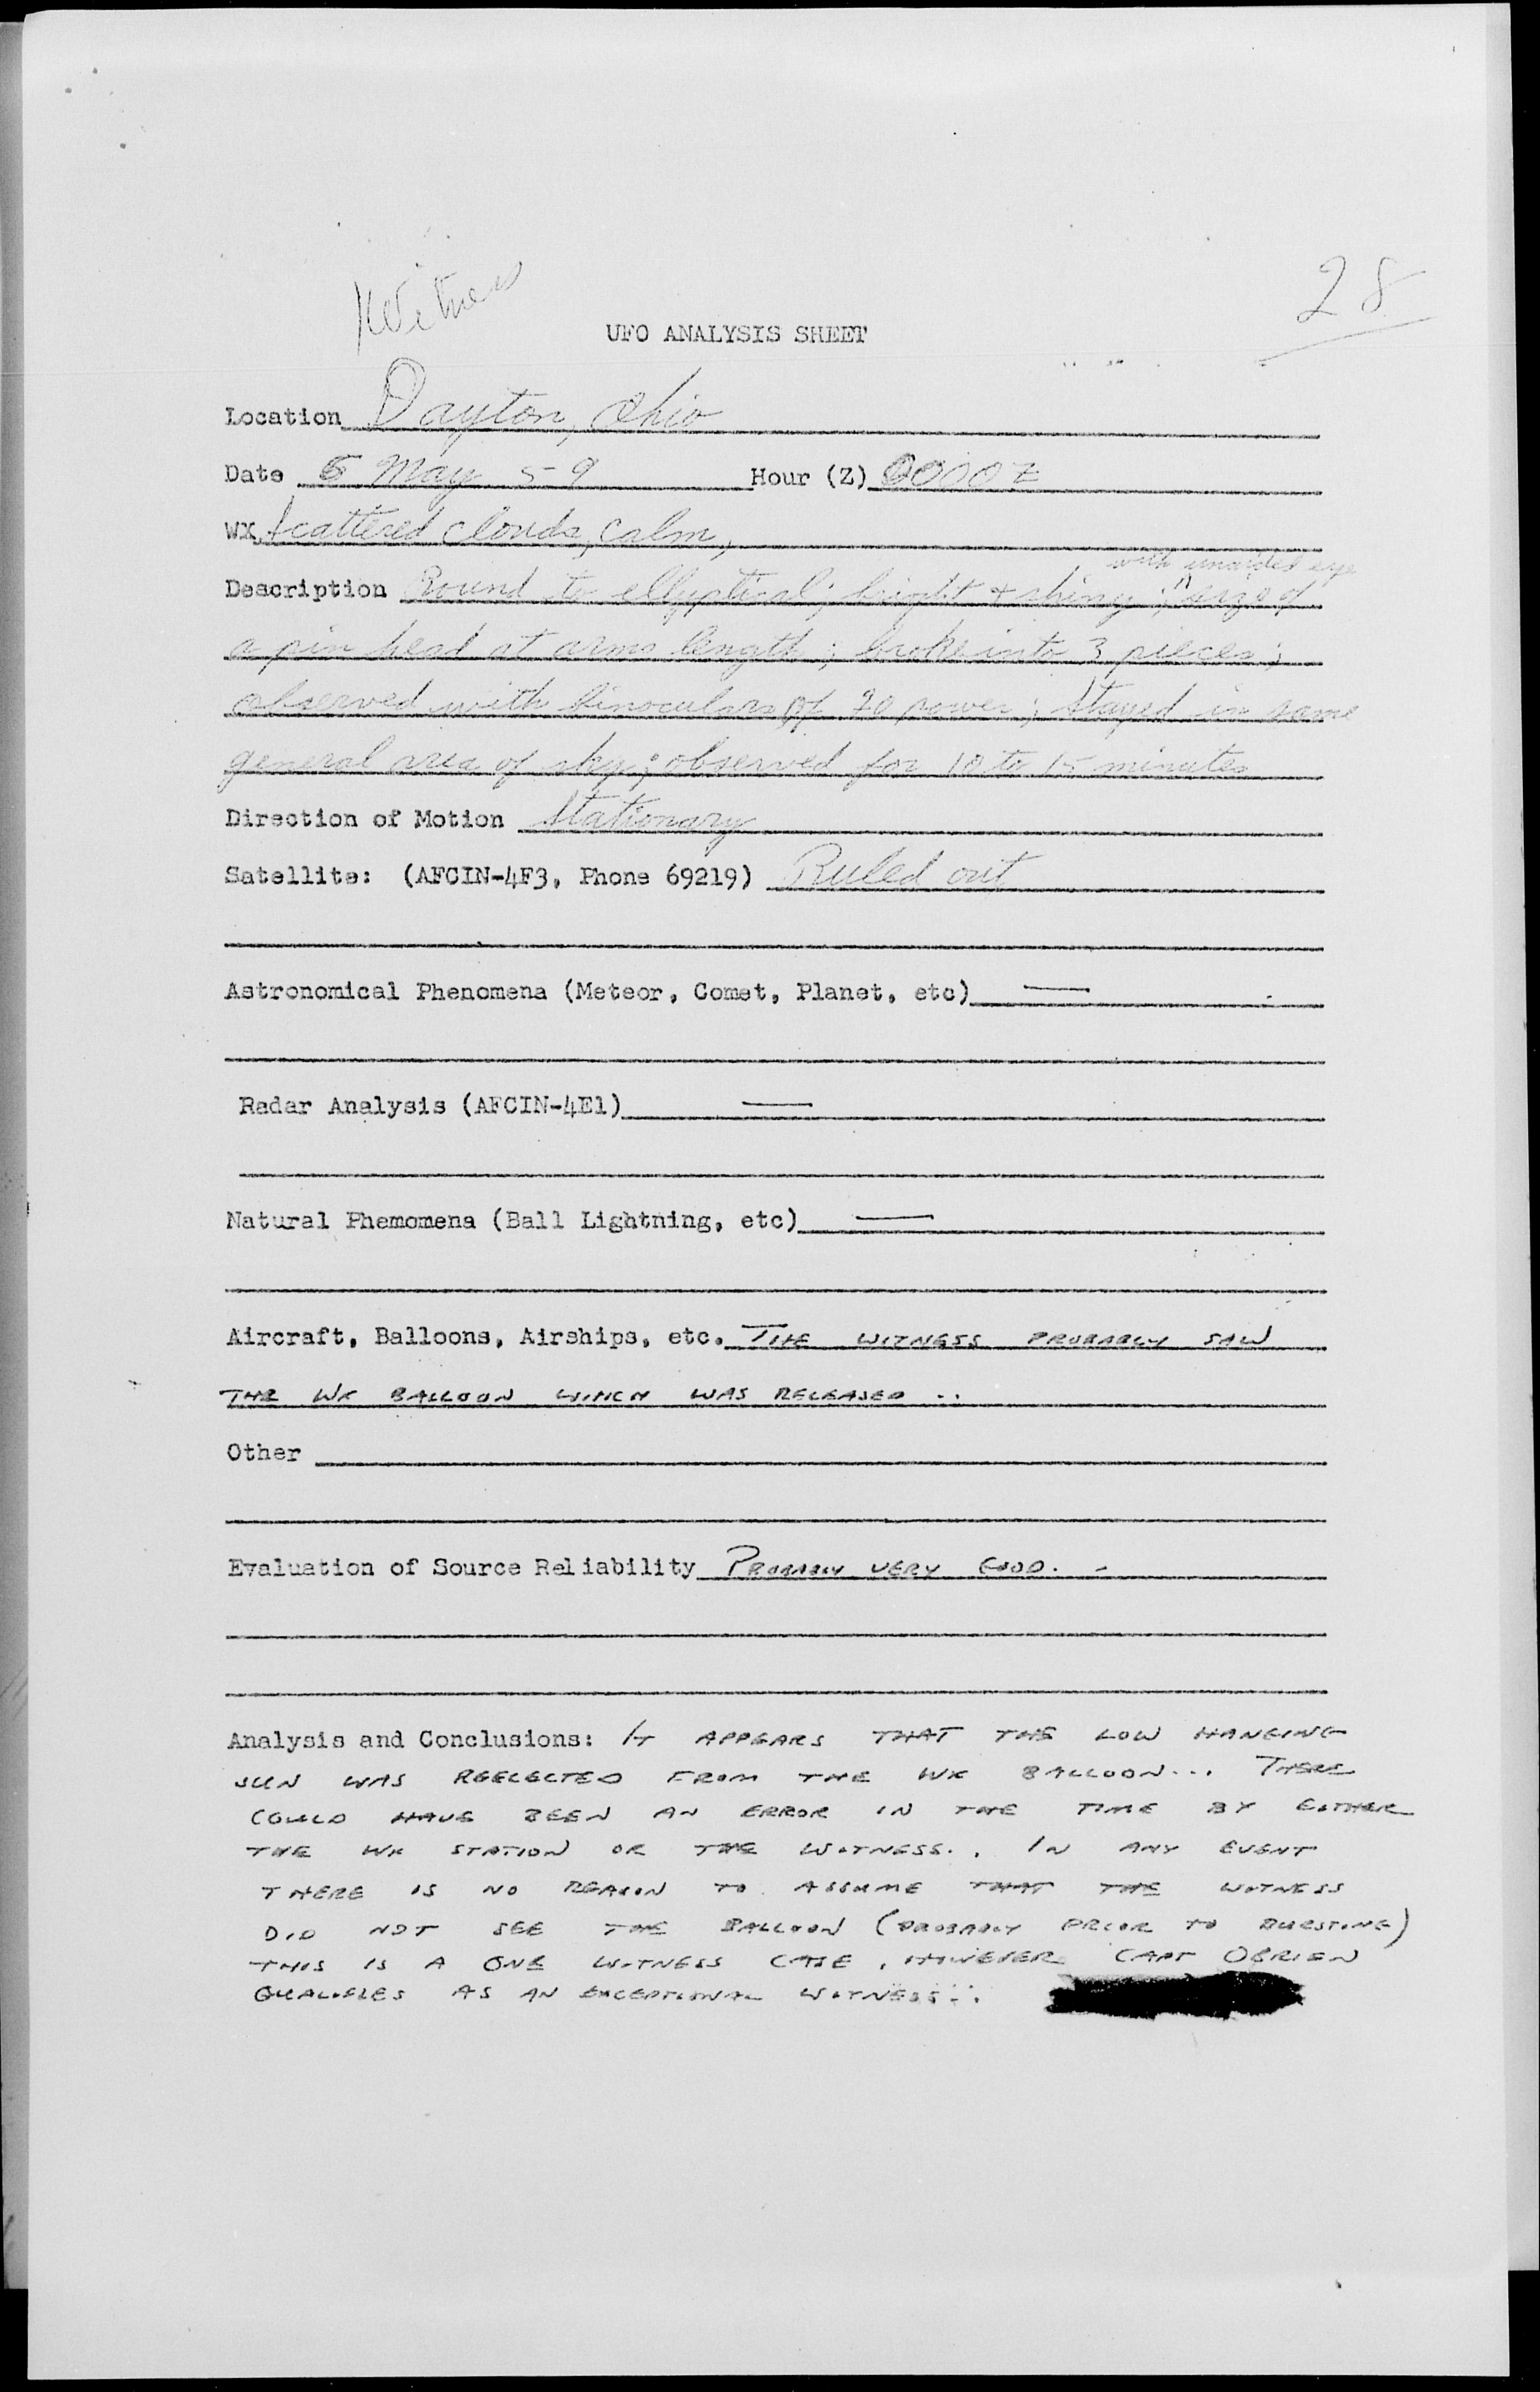 Witness
28
UFO ANALYSIS SHEET
Location Dayton, Ohio
Date 5 May 59 Hour (Z) 0000 Z
WX Scattered clouds, calm,
with unaided eye
Description Round to ellyptical; bright + shiny; size of
a pin head at arms length; broke into 3 pieces;
observed with binoculars of 20 power; stayed in same
general area of sky; observed for 10 to 15 minutes
Direction of Motion Stationary
Satellite: (AFCIN-4F3, Phone 69219) Ruled out
Astronomical Phenomena (Meteor, Comet, Planet, etc) —
Radar Analysis (AFCIN-4E1) —
Natural Phemomena (Ball Lightning, etc) —
Aircraft, Balloons, Airships, etc. THE WITNESS PROBABLY SAW
THE WX BALLOON WHICH WAS RELEASED ..
Other
Evaluation of Source Reliability PROBABLY VERY GOOD. -
Analysis and Conclusions: IT APPEARS THAT THE LOW HANGING
SUN WAS REFLECTED FROM THE WX BALLOON... THERE
COULD HAVE BEEN AN ERROR IN THE TIME BY EITHER
THE WX STATION OR THE WITNESS.. IN ANY EVENT
THERE IS NO REASON TO ASSUME THAT THE WITNESS
DID NOT SEE THE BALLOON (PROBABLY PRIOR TO BURSTING)
THIS IS A ONE WITNESS CASE, HOWEVER CAPT OBRIEN
QUALIFIES AS AN EXCEPTIONAL WITNESS...